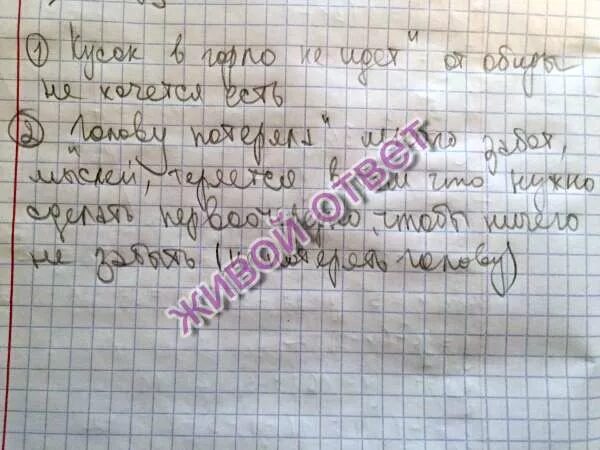 ① Кусок в горло не идет" от обиды
не хочется есть
② Голову потерял" много забот,
мыслей, теряется в том что нужно
сделать первоочередно, чтобы ничего
не забыть (не потерять голову)
ЖИВОЙ ОТВЕТ